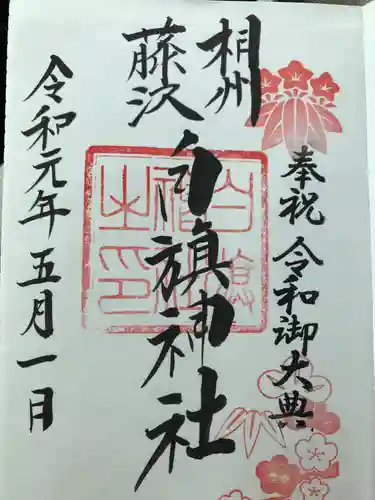 奉祝 令和御大典
相州
藤沢
白旗神社
令和元年五月一日